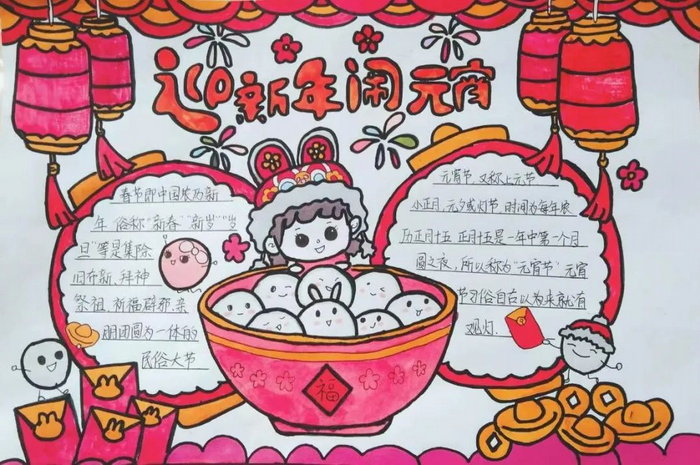 迎新年闹元宵
春节即中国农历新
年 俗称“新春”“新岁”“岁
旦”等是集除
旧布新、拜神
祭祖、祈福辟邪、亲
朋团圆为一体的
民俗大节
元宵节 又称上元节
小正月、元夕或灯节 时间为每年农
历正月十五 正月十五是一年中第一个月
圆之夜，所以称为“元宵节”元宵
节习俗自古以为来就有
观灯.
福